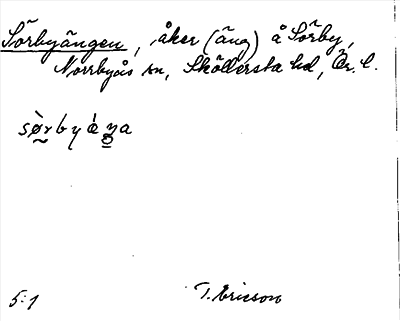 Sörbyängen, åker (äng) å Sörby,
Norrbyås sn, Sköllersta hd, Ör. l.
sø̀rbyǽŋa
5:1 T. Ericson